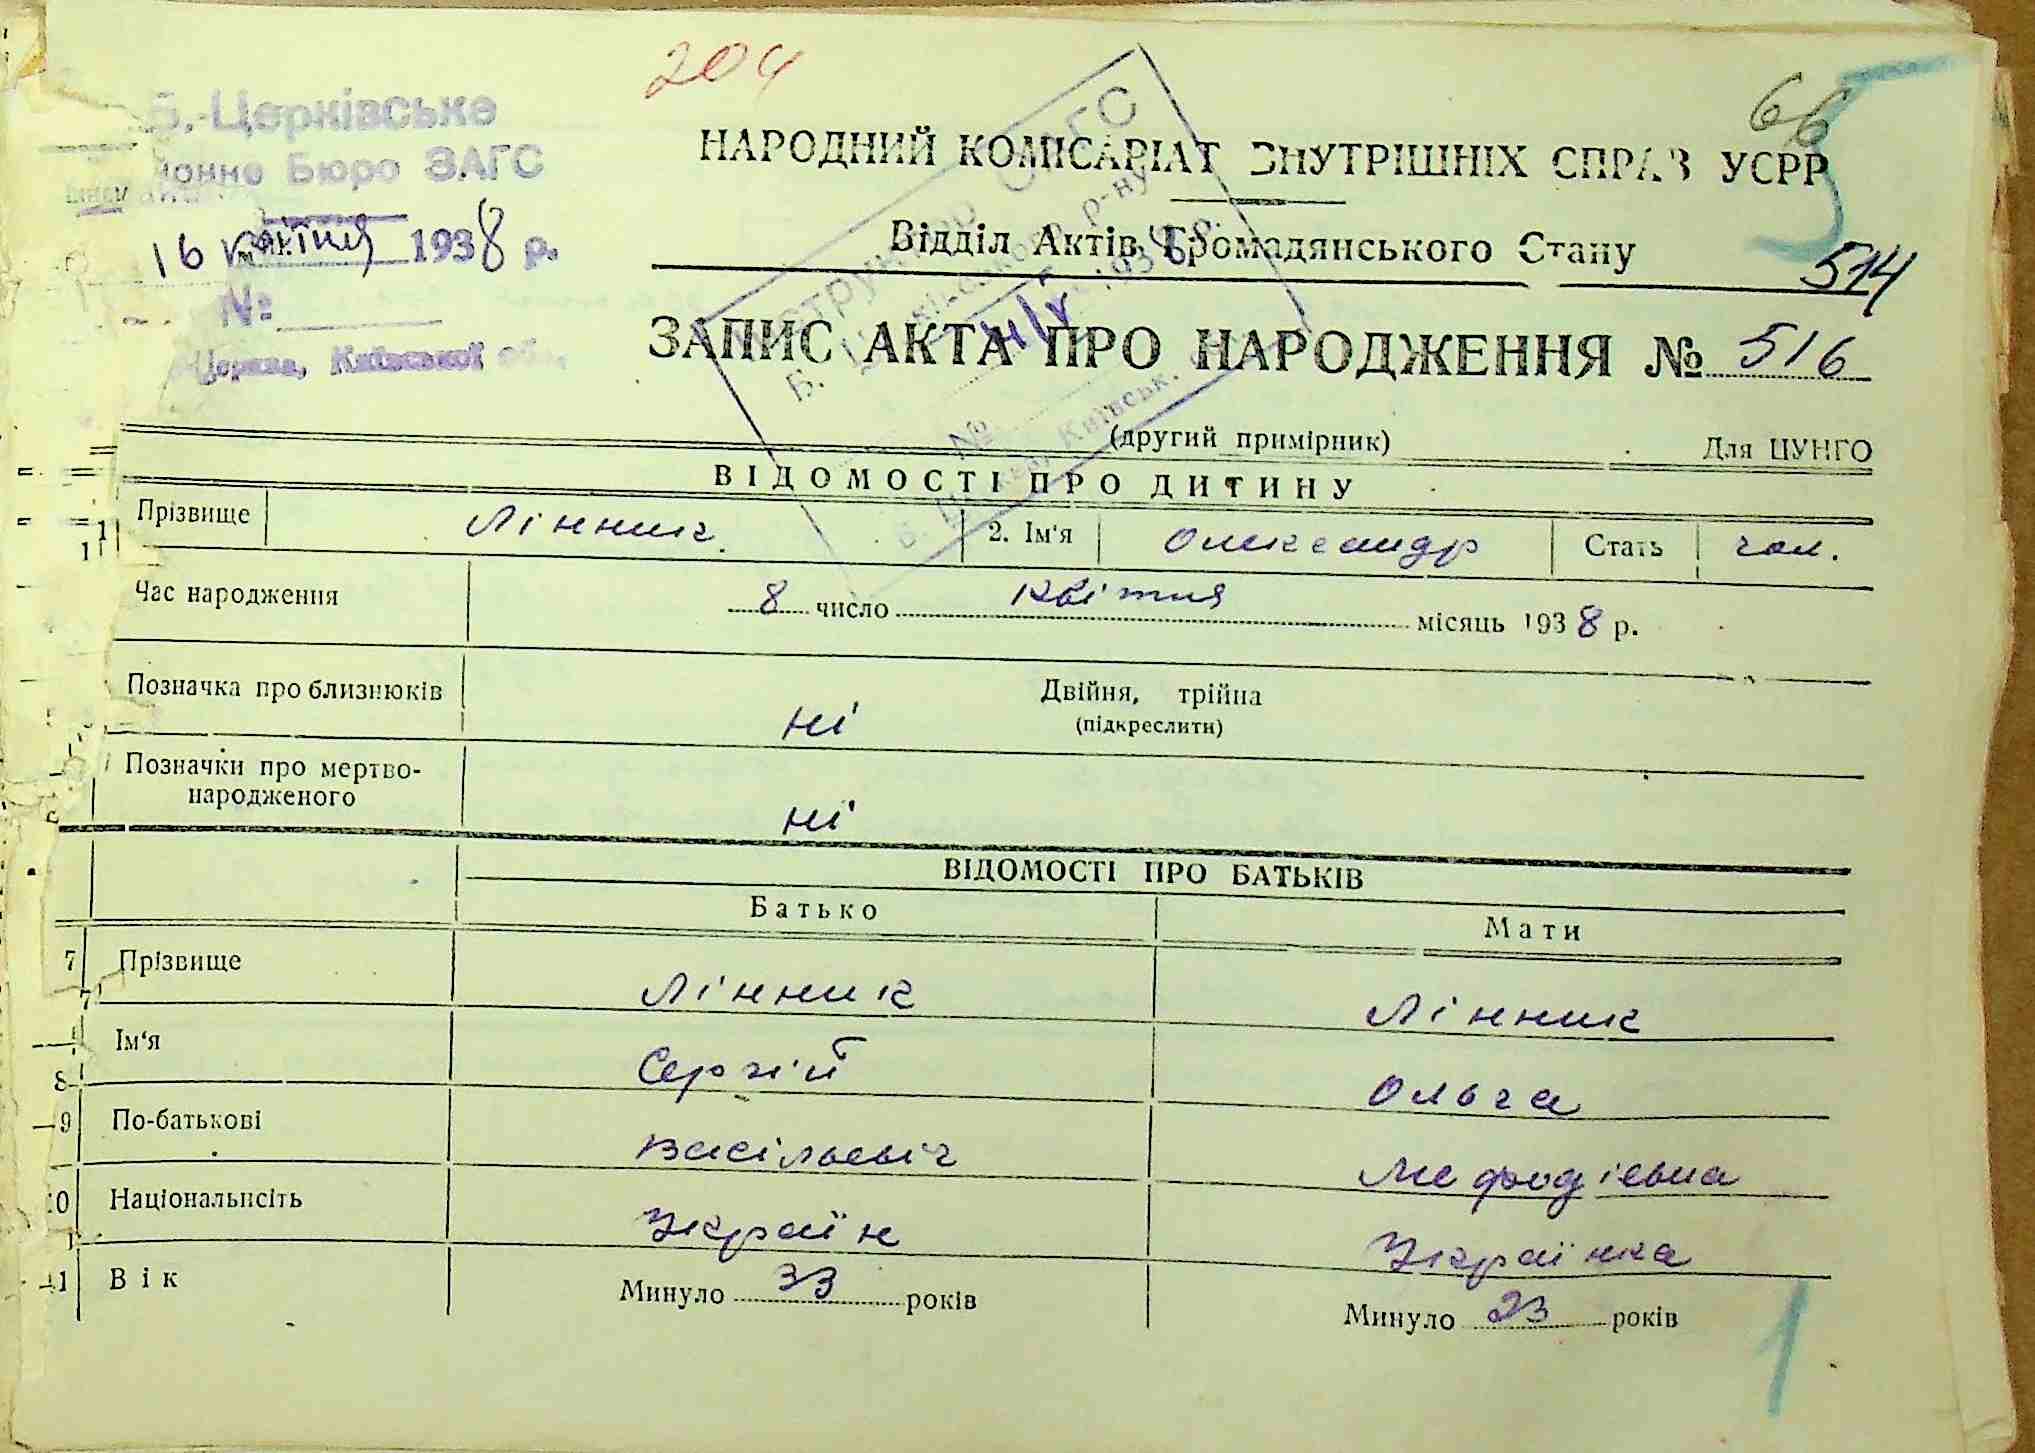 204
66
Б.-Церківське
Бюро ЗАГС
16 квітня 1938 р.
№
Церква, Київської обл.
НАРОДНИЙ КОМІСАРІАТ ВНУТРІШНІХ СПРАВ УСРР
Відділ Актів Громадянського Стану
514
ЗАПИС АКТА ПРО НАРОДЖЕННЯ № 516
(другий примірник) Для ЦУНГО
ЗАГС
р-ну
Б.
193 8 р.
№
Київськ.
ВІДОМОСТІ ПРО ДИТИНУ
1 Прізвище Лінник 2. Ім'я Олександр Стать чол.
Час народження 8 число Квітня місяць 1938 р.
Позначка про близнюків ні Двійня, трійна
(підкреслити)
Позначки про мертво-
народженого ні
ВІДОМОСТІ ПРО БАТЬКІВ
Батько Мати
7 Прізвище Лінник Лінник
8 Ім'я Сергій Ольга
9 По-батькові Васільевіч Мефодіевна
10 Національність Україн Українка
11 Вік Минуло 33 років Минуло 23 років
1